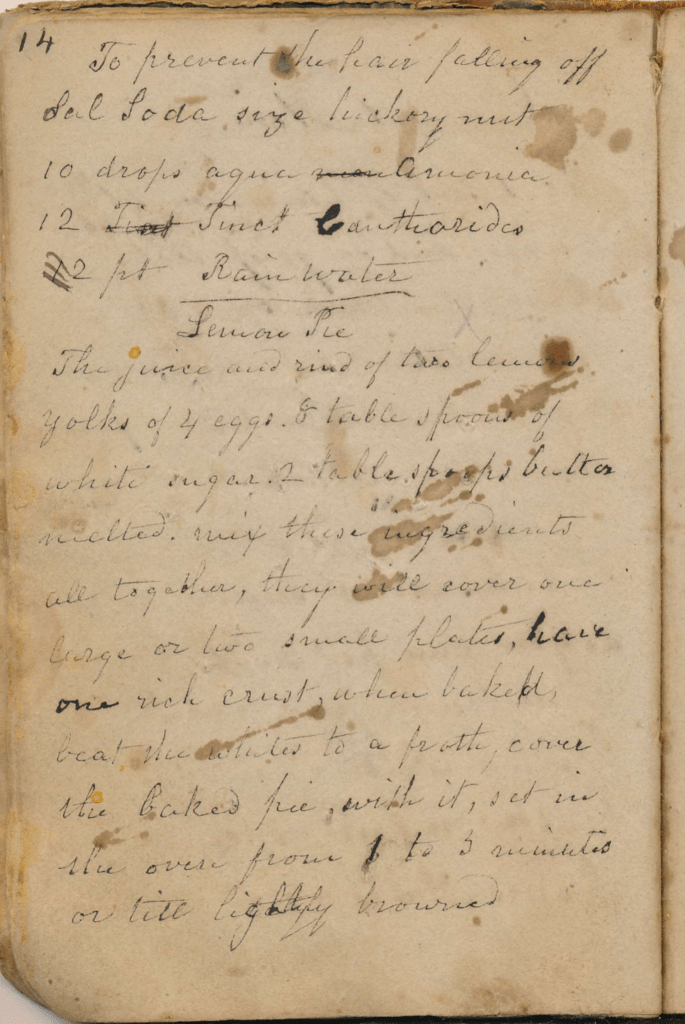 14
To prevent the hair falling off
Sal Soda size hickory nut
10 drops aqua Amonia
12 Tinct Tinct Cantharides
12 pt Rain water
Lemon Pie
The juice and rind of two lemons
yolks of 4 eggs. 8 table spoons of
white sugar. 2 table spoons butter
melted. mix these ingredients
all together, they will cover one
large or two small plates, have
one rich crust, when baked,
beat the whites to a froth, cover
the baked pie, with it, set in
the oven from 1 to 3 minutes
or till lightly browned